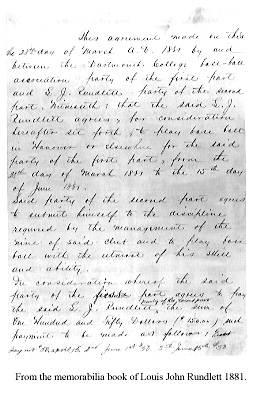 This agreement made on this
the 28th day of March A.D. 1881 by and
between the Dartmouth College base-ball
association party of the first part
and L. J. Rundlett party of the second
part, Witnesseth: that the said L. J.
Rundlett agrees, for consideration
hereafter set forth, to play base ball
in Hanover or elsewhere for the said
party of the first part, from the
day of March 1881 to the 15th day
of June 1881.
Said party of the second part agrees
to submit himself to the discipline
required by the management of the
nine of said club and to play base
ball with the utmost of his skill
and ability.
In consideration whereof the said
party of the first part agrees to pay
party of the second part
the said L. J. Rundlett, the sum of
One Hundred and Fifty Dollars ($150.00) said
payment to be made as follows:
April 15 June 1st June 15th
From the memorabilia book of Louis John Rundlett 1881.